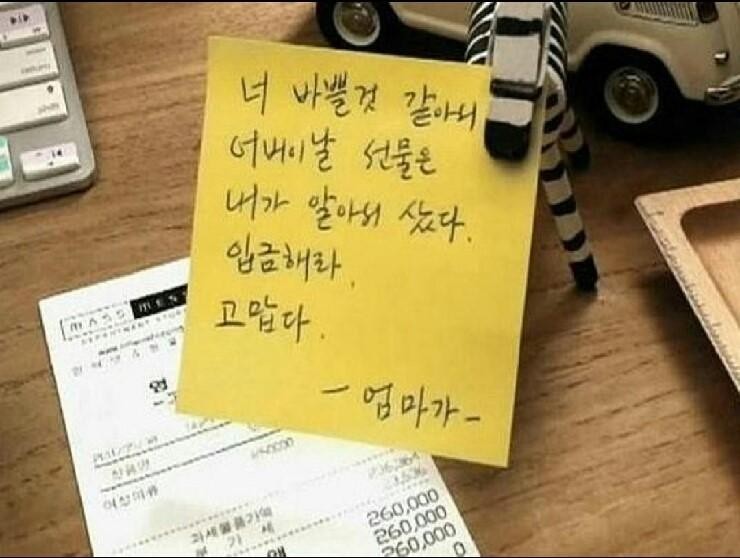 너 바쁠것 같아서
어버이날 선물은
내가 알아서 샀다.
입금해라.
고맙다.
- 엄마가 -
MASS
DEPARTMENT STOR
여성의류
과세물품가액
부 가 세
260,000
260,000
260,000
0